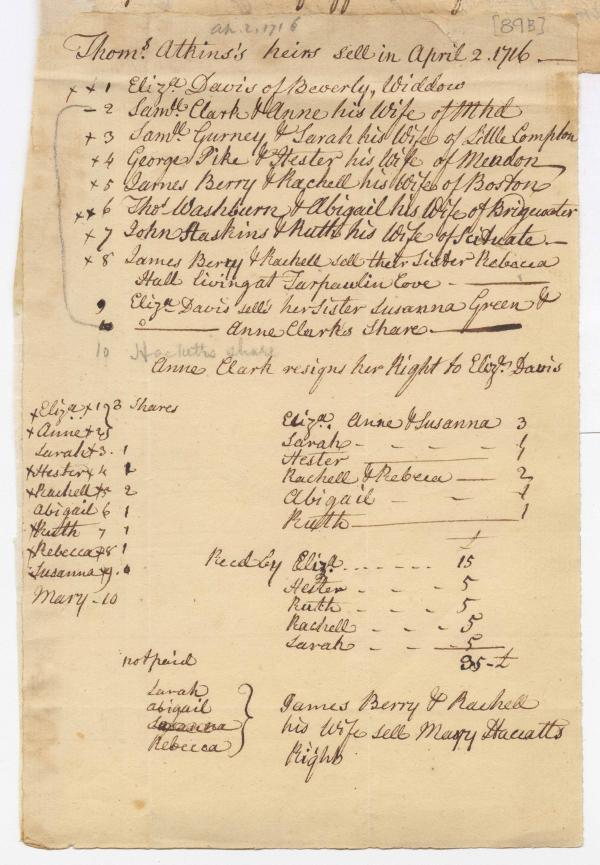 ap. 2. 1716
[89B]
Thoms. Atkins's heirs sell in April 2. 1716
x x 1 Eliza. Davis of Beverly, Widdow
- 2 Samll. Clark & Anne his Wife of Mhd
x 3 Samll. Gurney & Sarah his Wife of Little Compton
x 4 George Pike & Hester his Wife of Mendon
x 5 James Berry & Rachell his Wife of Boston
x x 6 Thos. Washburn & Abigail his Wife of Brigwater
x 7 John Haskins & Ruth his Wife of Scituate
x 8 James Berry & Rachell sell their Sister Rebecca
Hall living at Tarpawlin Cove
9 Eliza. Davis sells her Sister Susanna Green &
10 Do. Anne Clark's Share
10 Hacketts share
Anne Clark resigns her Right to Eliza. Davis
x Eliza x 1 } 3 Shares
x Anne x 2
Sarah x 3. 1
x Hester x 4 1
x Rachell x 5 2
Abigail 6 1
x Ruth 7 1
x Rebecca x 8 1
Susanna x 9. 0
Mary - 10
Eliza. Anne & Susanna 3
Sarah - - - - 1
Hester 1
Rachell & Rebeca 2
Abigail - - 1
Ruth 1
Recd by Eliza. 15
Hester - - 5
Ruth - - 5
Rachell - - 5
Sarah - - 5
35 - £
not paid
Sarah
abigail
Susanna
Rebecca
James Berry & Rachell
his Wife sell Mary Haccatts
Right